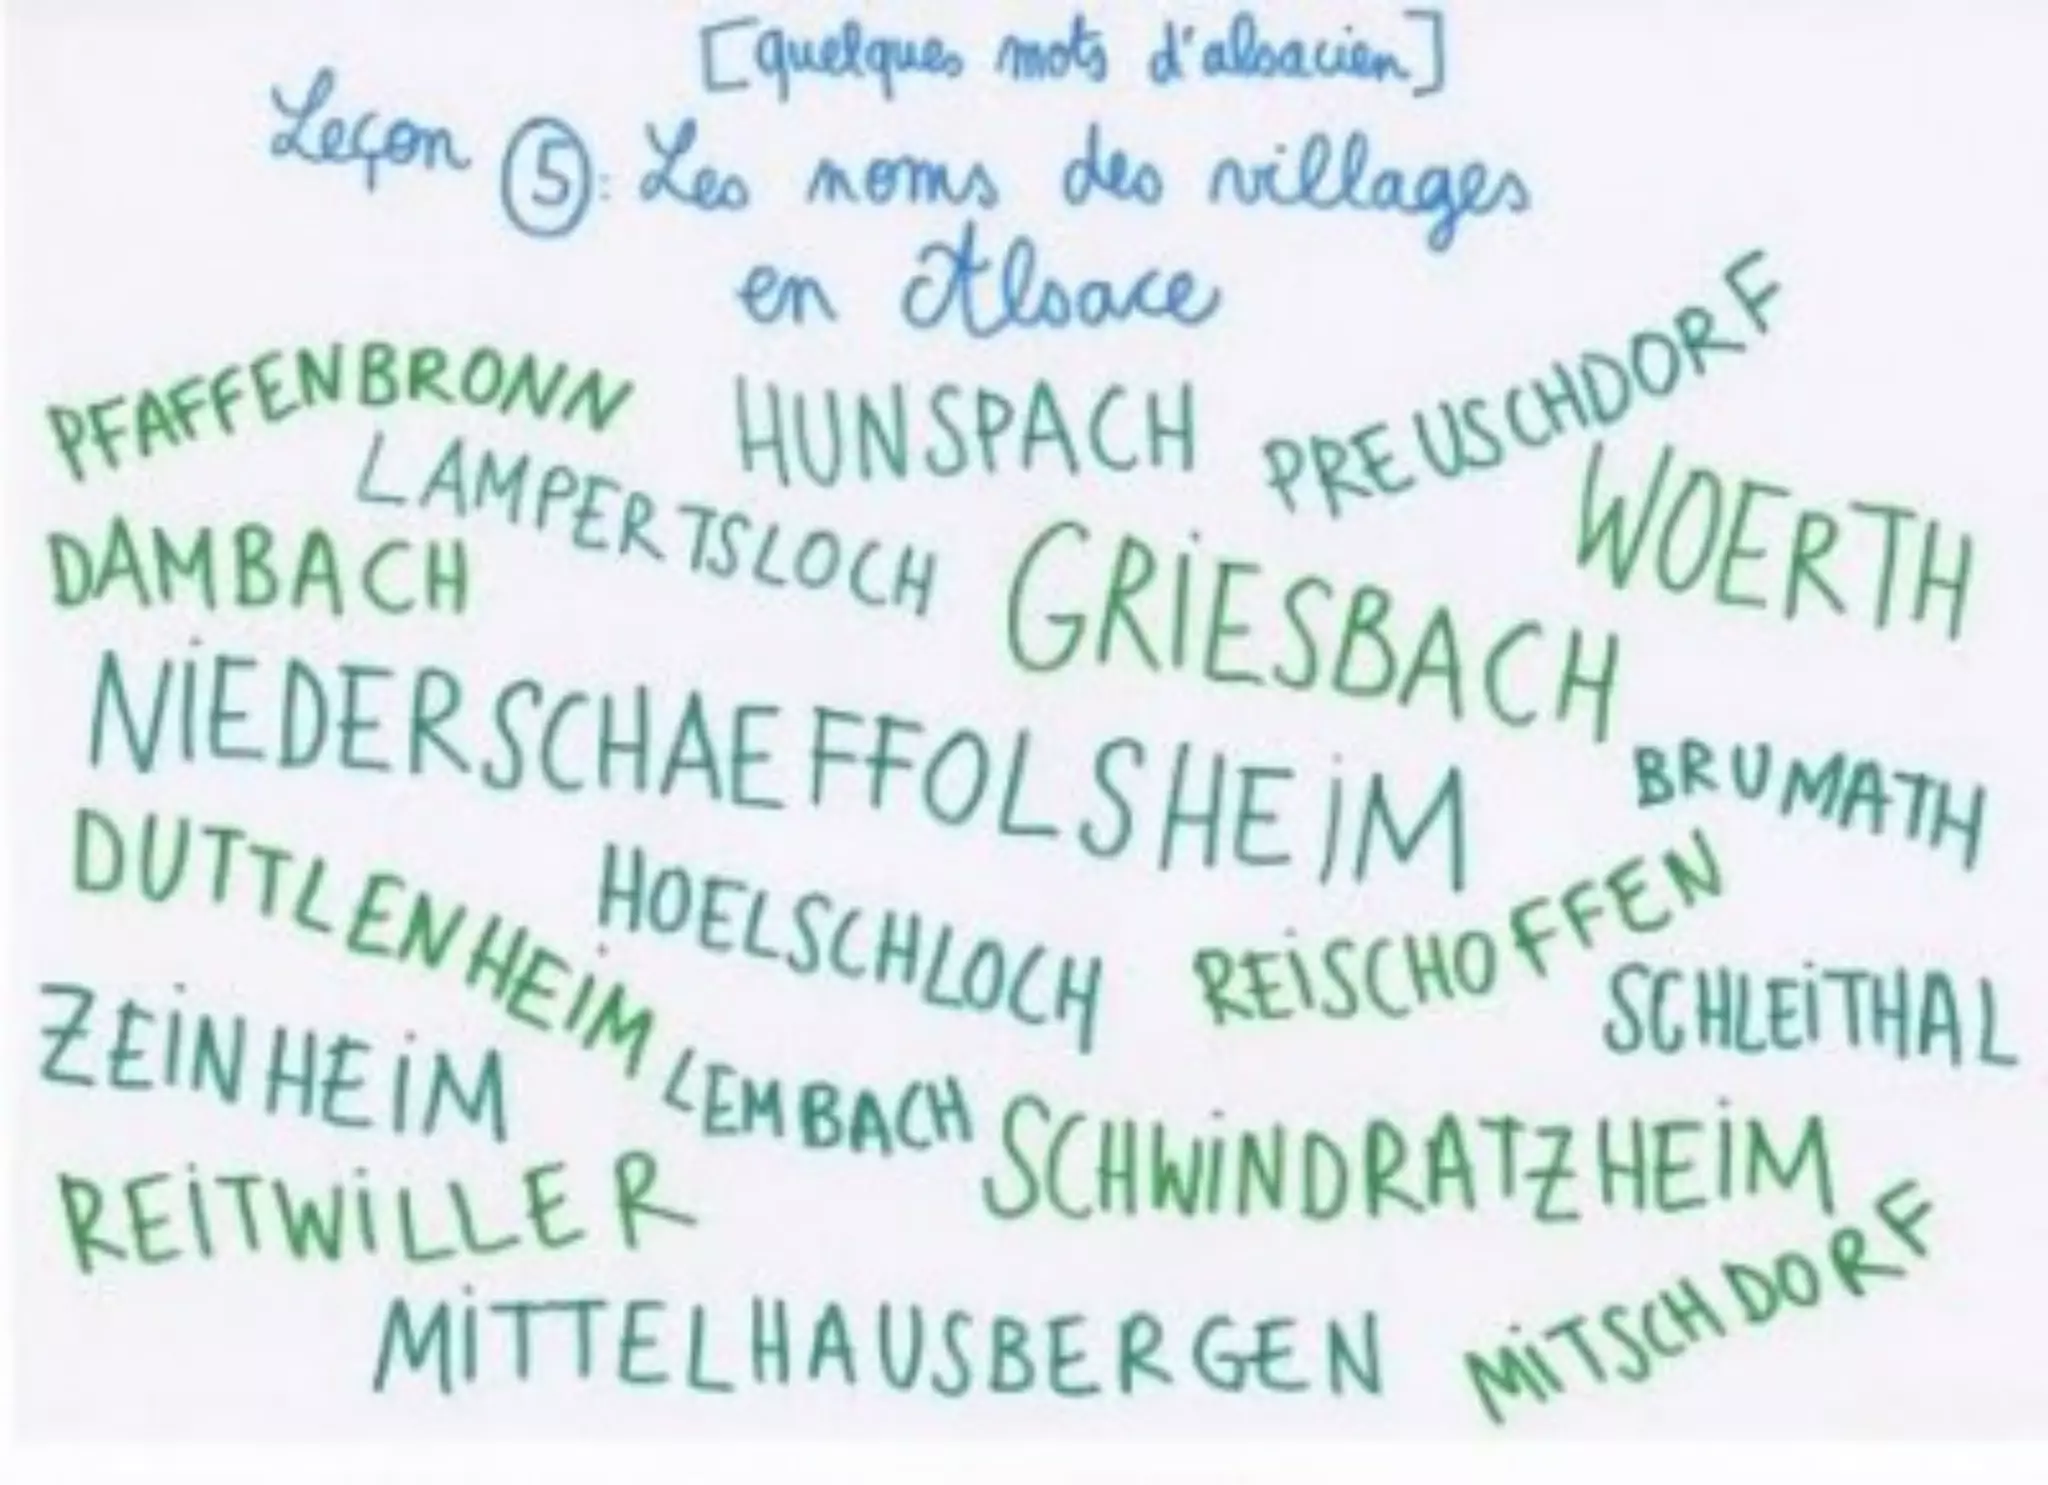 [quelques mots d'alsacien]
Leçon 5: Les noms des villages
en Alsace
PFAFFENBRONN
HUNSPACH
PREUSCHDORF
LAMPERTSLOCH
WOERTH
DAMBACH
GRIESBACH
NIEDERSCHAEFFOLSHEIM
BRUMATH
DUTTLENHEIM
HOELSCHLOCH
REISCHOFFEN
SCHLEITHAL
ZEINHEIM
LEMBACH
SCHWINDRATZHEIM
REITWILLER
MITTELHAUSBERGEN
MITSCHDORF